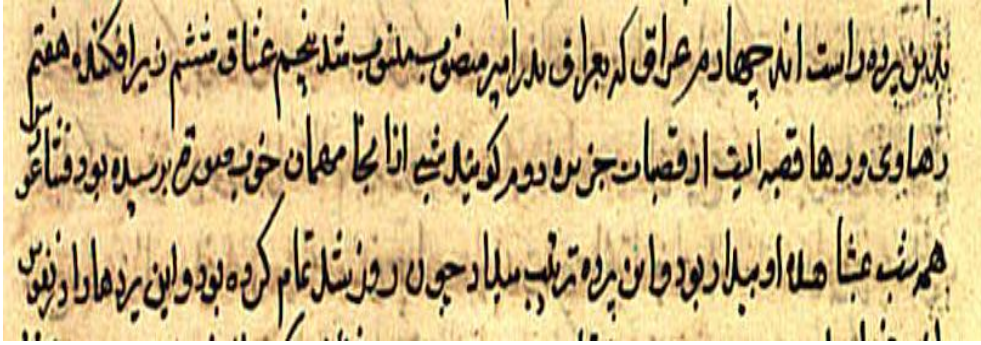 بدین پرده راست اند چهارم عراق که بعراق بدر امیر منصوب منسوب شد پنجم عشاق ششم زیرافکنده هفتم
رهاوی و رها قصبه ایست از قصبات جزیره دوم کویند شبی از انجا مهمان خوب صورتی برسیده بود فیثاغورس
همه شب عشا بیدار بود و این پرده ترتیب میداد چون روز شد تمام کرده بود و این پردها را در نفوس